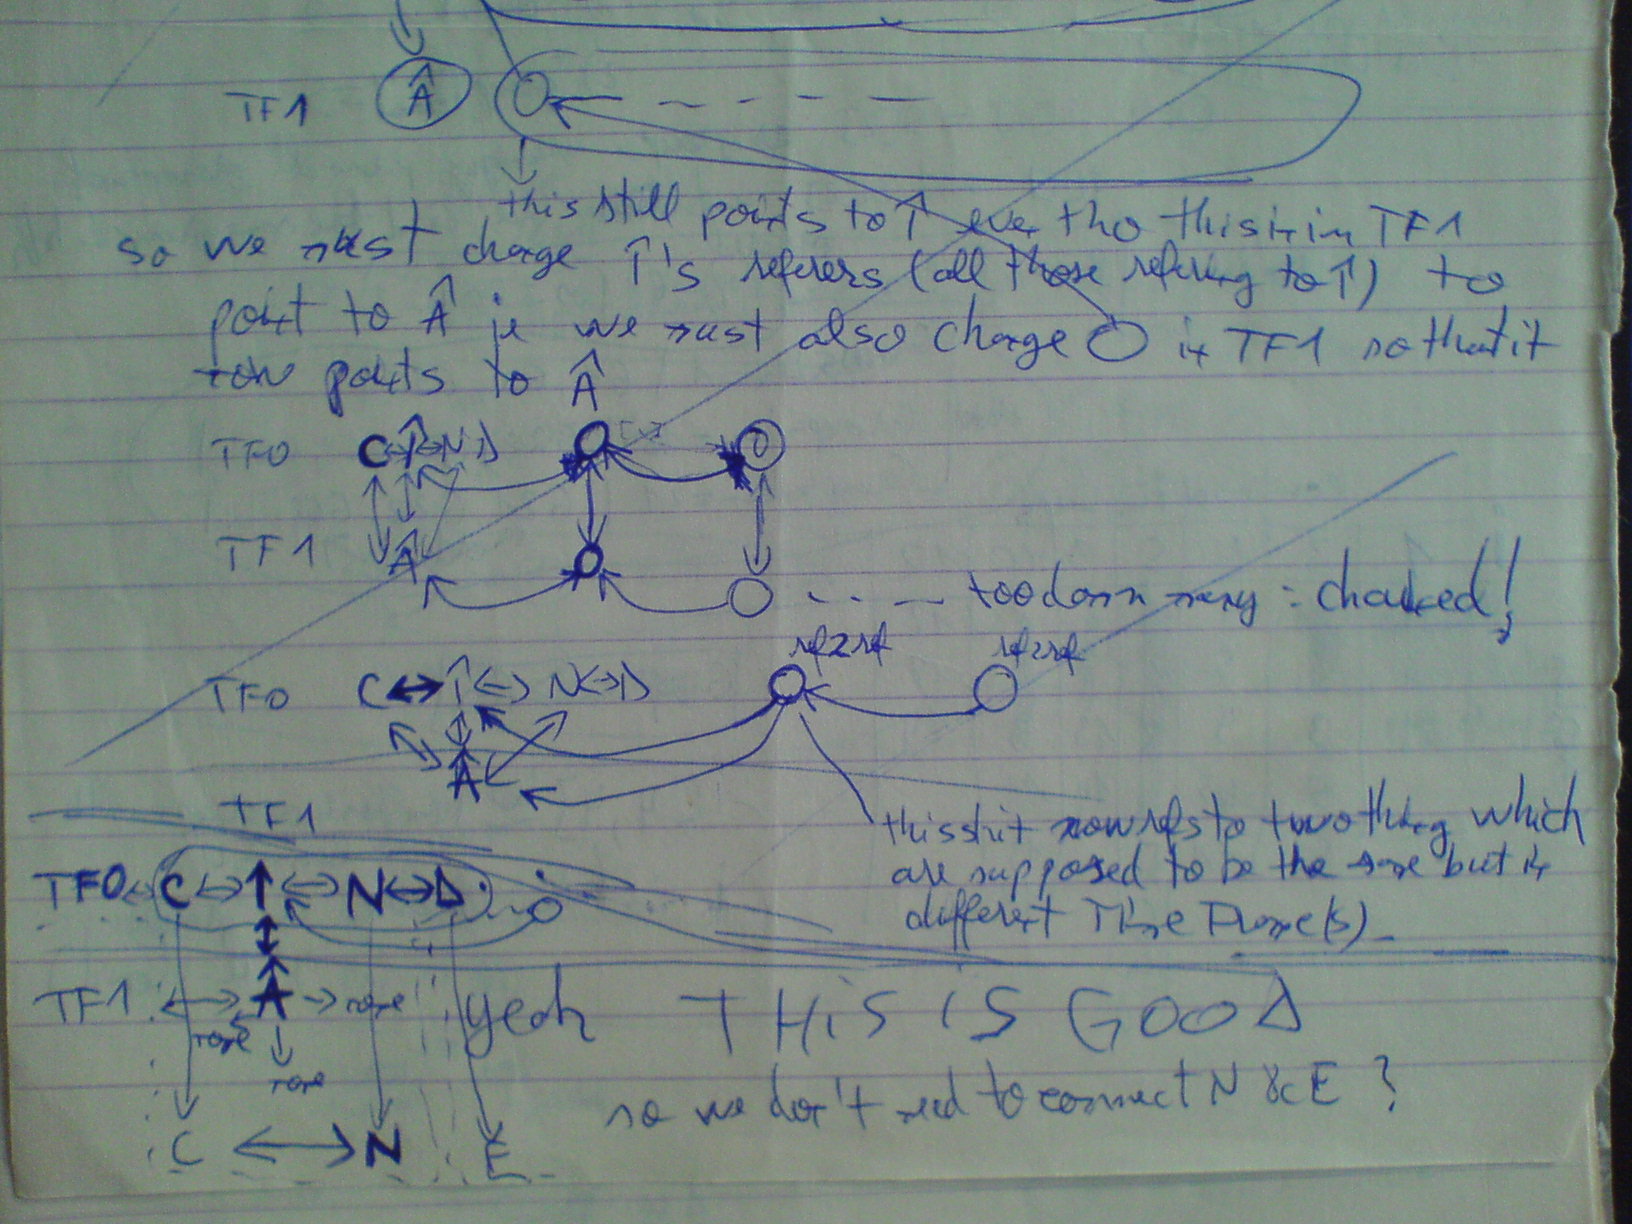 TF1 Â
this still points to ↑ even tho this is in TF1
so we must change ↑'s referers (all those refering to ↑) to
point to Â ie we must also change O in TF1 so that it
now points to Â
TF0 C ↑ N D
TF1 Â
too damn many : chained!
ref2ref ref2ref
TF0 C ↔ ↑ ↔ N ↔ D
Â
TF1
this shit now refs to two thing which
are supposed to be the same but in
different Time Frame(s)
TF0 C ↔ ↑ ↔ N ↔ D
TF1 ↔ A → none
none
none
yeah THiS iS GOOD
so we don't need to connect N & E ?
C ↔ N E